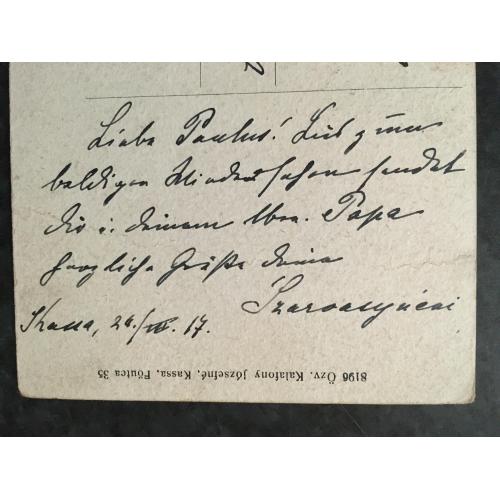 Liebe Paulus! Bis zum
baldigen Wiedersehen sendet
dir u. deinem Papa
herzliche Grüße deine
Kassa, 17.
8196 Özv. Kalafony józsefné, Kassa, Főutca 35